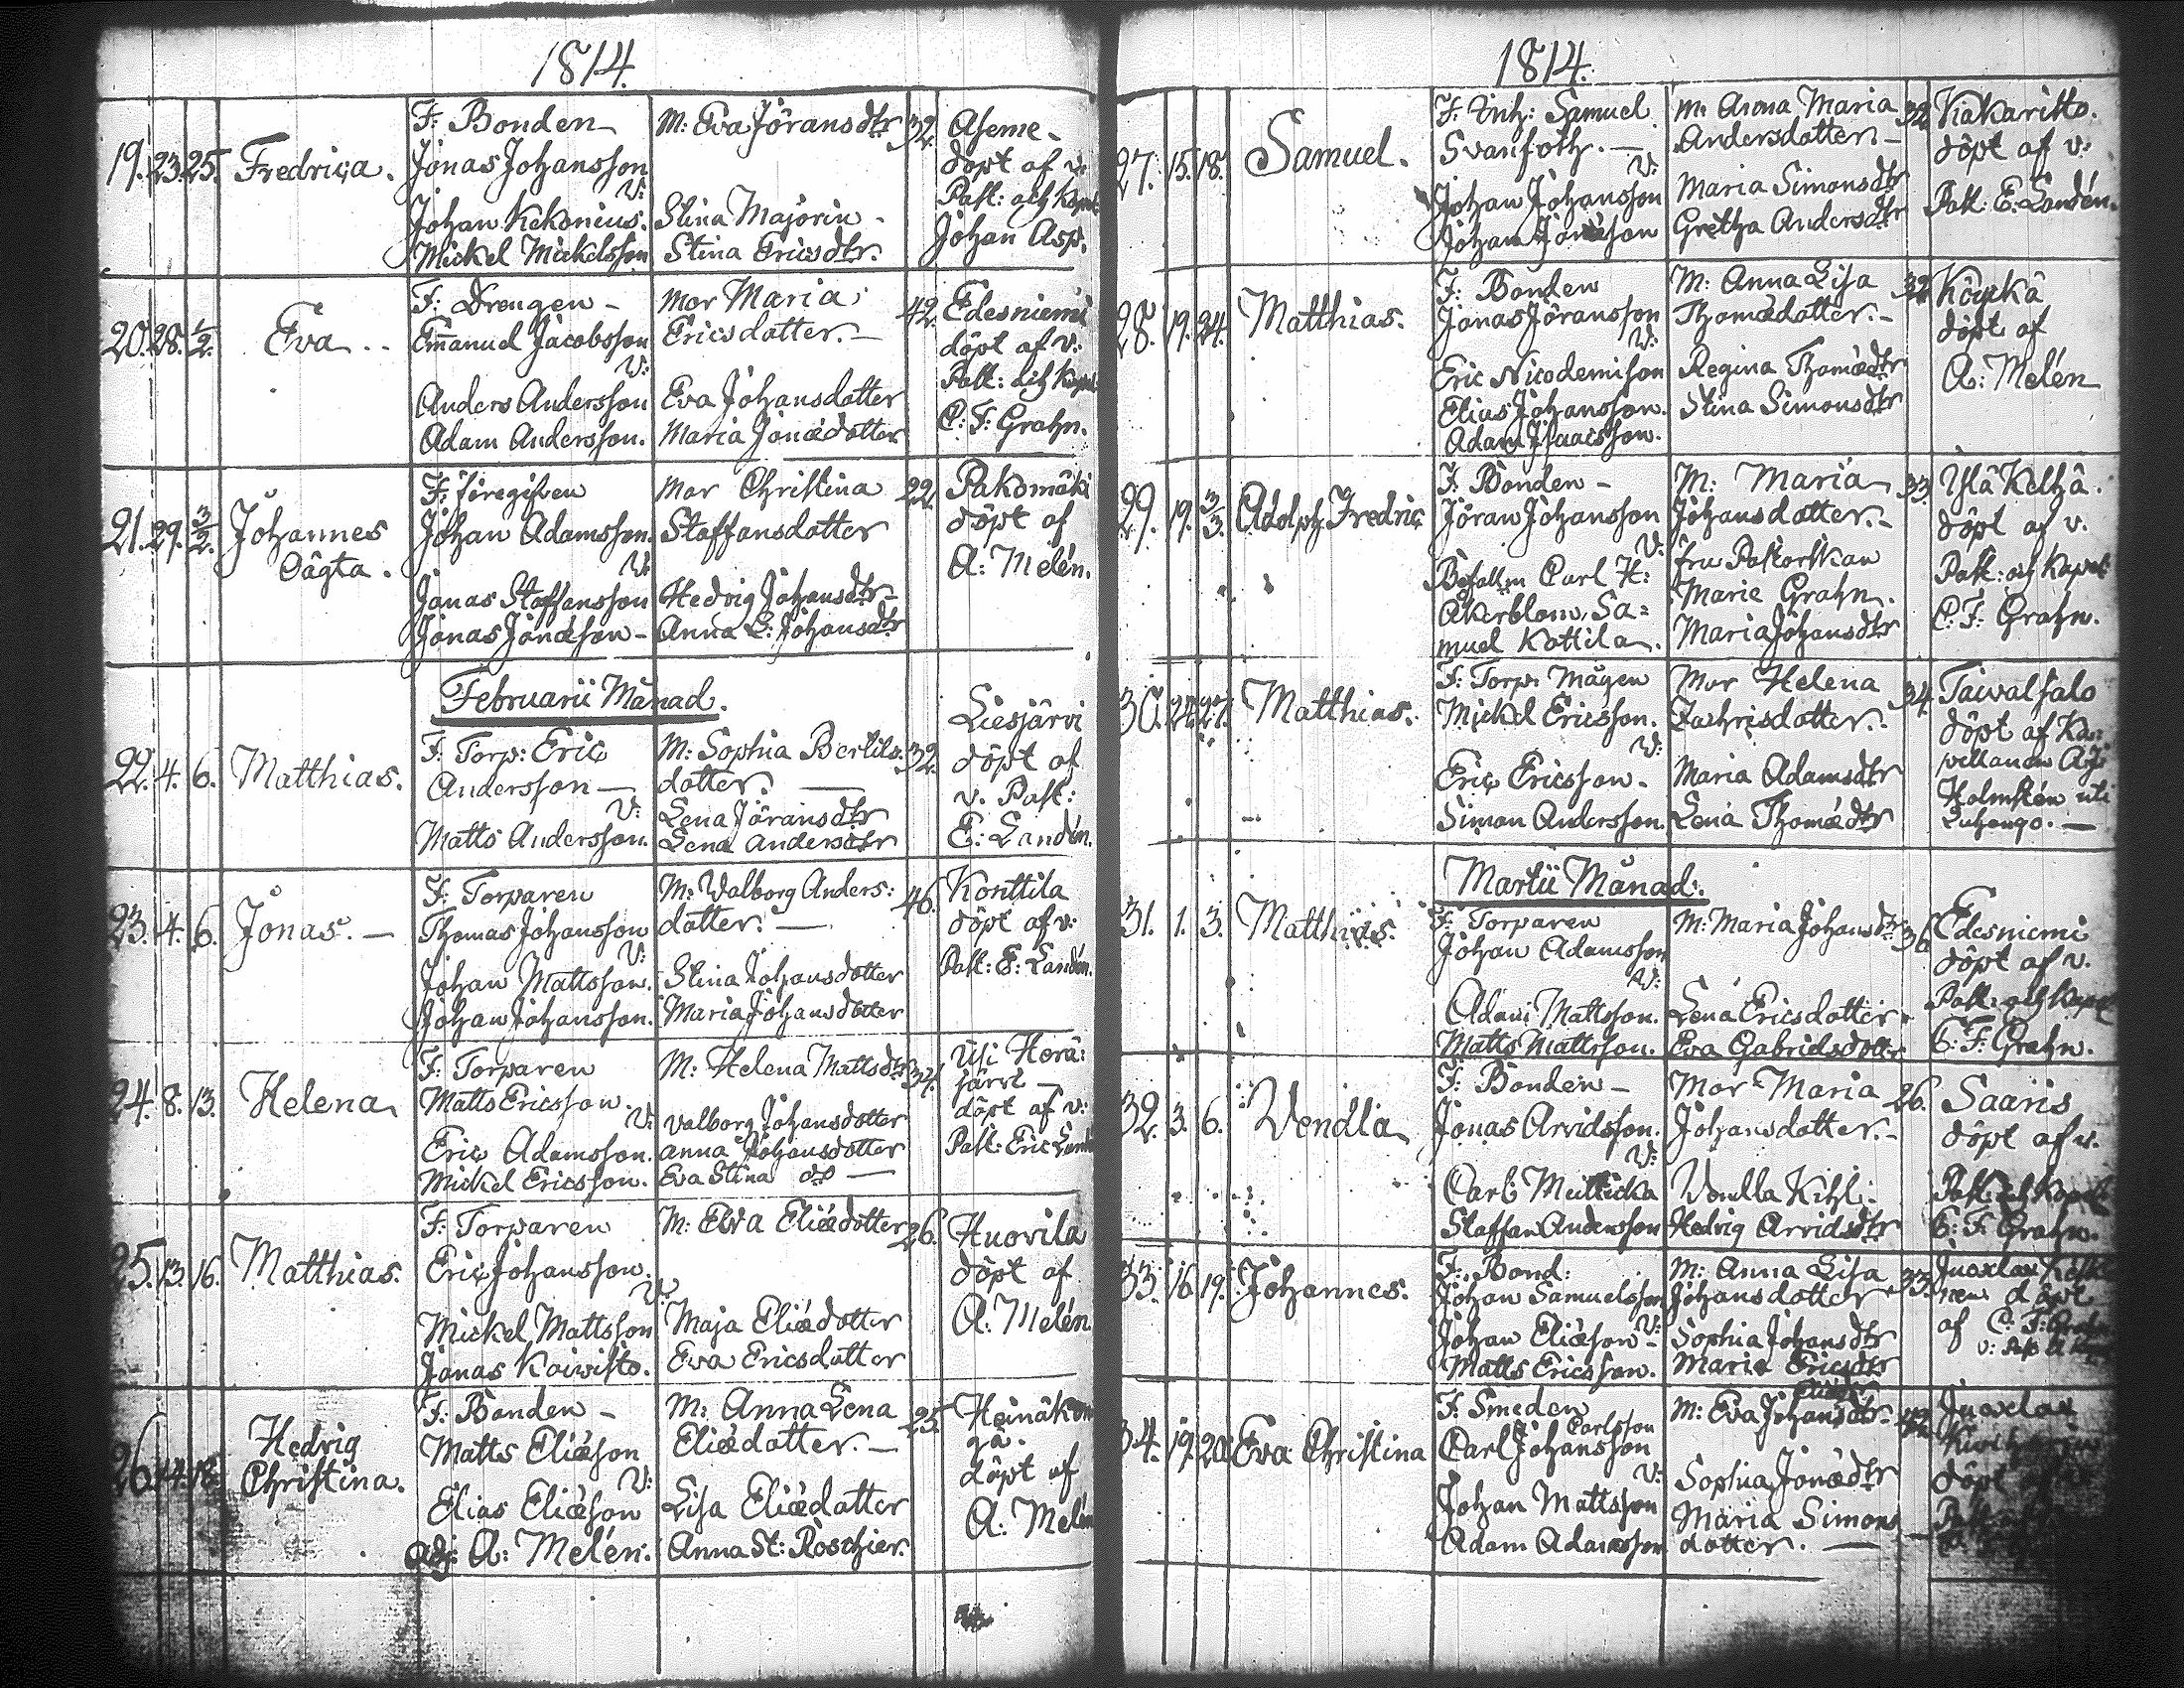 1814.
19. 23. 25. Fredrica.
F: Bonden
Jonas Johansson
V:
Johan Kekonius.
Mickel Mickelsson
M: Eva Jöransdtr 32.
Stina Majorin -
Stina Ericsdtr.
Aseme -
döpt af v:
Past: och Kapel
Johan Asp.
20. 28. 1/2. Eva
F: Drengen -
Emanuel Jacobsson
V:
Anders Andersson
Adam Andersson.
Mor Maria 42.
Ericsdotter. -
Eva Johansdotter
Maria Jonædotter
Edesniemi
döpt af v:
Past: och Kapel
C: F: Grahn.
21. 29. 3/2. Johannes
F:
Johan Adamsson.
V:
Jonas Staffansson
Jonas Jonæson -
Mor Christina 22.
Staffansdotter
Hedvig Johansdtr -
Anna L: Johansdtr
Pakomäki
döpt af
A: Melén.
Februarii Månad.
22. 4. 6. Matthias.
F: Torp: Eric
Andersson -
V:
Matts Andersson.
M: Sophia Bertils: 32.
dotter. -
Lena Jöransdtr
Lena Andersdtr
Liesjärvi
döpt af
v. Past:
E: Landén.
23. 4. 6. Jonas. -
F: Torparen
Thomas Johansson
V:
Johan Mattsson.
Johan Johansson.
M: Walborg Anders: 46.
dotter. -
Stina Johansdotter
Maria Johansdotter
Konttila
döpt af v:
Past: E: Landén.
24. 8. 13. Helena
F: Torparen
Matts Ericsson.
V:
Eric Adamsson.
Mickel Ericsson.
M: Helena Mattsdtr 34.
Valborg Johansdotter
Anna Johansdotter
Eva Stina do -
Usi Horä:
järvi -
döpt af v:
Past: Eric
25. 13. 16. Matthias.
F: Torparen
Eric Johansson.
V:
Mickel Mattsson
Jonas Koivisto.
M: Eva Eliædotter 26.
Maja Eliædotter
Eva Ericsdotter
Huovila
döpt af
A: Melén
26. 14. 18. Hedvig
Christina.
F: Bonden -
Matts Eliæson
V:
Elias Eliæson
Adj: A: Melén.
M: Anna Lena 25.
Eliædotter. -
Lisa Eliædotter
Anna St: Roschier.
Heinäkon
gä.
döpt af
A: Melén
1814.
27. 15. 18. Samuel.
F: Inh: Samuel
V:
Johan Johansson
Johan Jonæson
M: Anna Maria 32.
Andersdotter. -
Maria Simonsdtr
Gretha Andersdtr
Kakaristo.
döpt af v:
Past: E. Landén.
28. 19. 24. Matthias.
F: Bonden
Jonas Jöransson
V:
Eric Nicodemison
Elias Johansson.
Adam Isaacsson.
M: Anna Lisa 32.
Thomædotter. -
Regina Thomædtr
Stina Simonsdtr
Köykä
döpt af
A: Melén
29. 19. 3/3. Adolph Fredric
F: Bonden -
Jöran Johansson
V:
Befallm Carl H:
Åkerblom, Sa=
muel Kottila.
M: Maria 33.
Johansdotter. -
fru Pastorskan
Marie Grahn.
Maria Johansdtr
Ylä Keltjä.
döpt af v.
Past: och Kapel
C: F: Grahn.
30. 27. Matthias.
F: Torp: Mågen
Mickel Ericsson.
V:
Eric Ericsson.
Simon Andersson.
Mor Helena 34.
Zachrisdotter.
Maria Adamsdtr
Lena Thomædtr
Taivalsalo
döpt af Ka:
pellanen
Holmstén uti
Luhango. -
Martii Månad.
31. 1. 3. Matthias.
F: Torparen
Johan Adamsson
V:
Adam Mattsson.
Matts Mattsson.
M: Maria Johansdtr 36
Lena Ericsdotter
Eva Gabrielsdotter
Edesniemi
döpt af v.
Past: och Kapel
C: F: Grahn.
32. 3. 6. Vendla
F: Bonden -
Jonas Arvidsson.
V:
Carl
Staffan Andersson
Mor Maria 26.
Johansdotter. -
Vendla Kihl:
Hedvig Arvidsdtr
Saaris
döpt af v.
Past: och Kapel
C: F: Grahn.
33. 16. 19. Johannes.
F: Bond:
Johan Samuelsson
V:
Johan Eliæson -
Matts Ericsson.
M: Anna Lisa 33.
Johansdotter
Sophia Johansdtr
Maria Ericsdtr
döpt
af C: F:
34. 19. 20. Eva Christina
F: Smeden
Carlsson
Carl Johansson
V:
Johan Mattsson
Adam Adamsson
M: Eva Johansdtr.
Sophia Jonædtr
Maria Simons
dotter. -
döpt